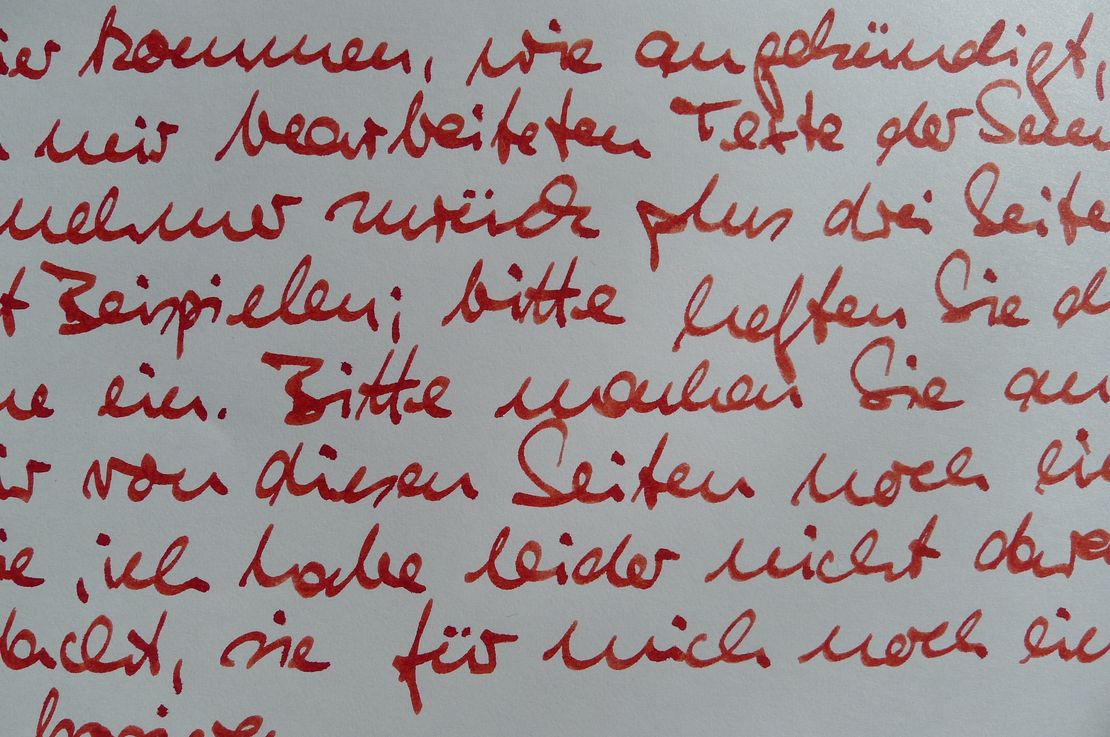 ier kommen, wie angekündigt,
mir bearbeiteten Texte der Sem
nehmer zurück plus drei Seite
t Beispielen; bitte heften Sie d
ne ein. Bitte machen Sie an
ir von diesen Seiten noch ein
ie, ich habe leider nicht dara
dacht, sie für mich noch ein